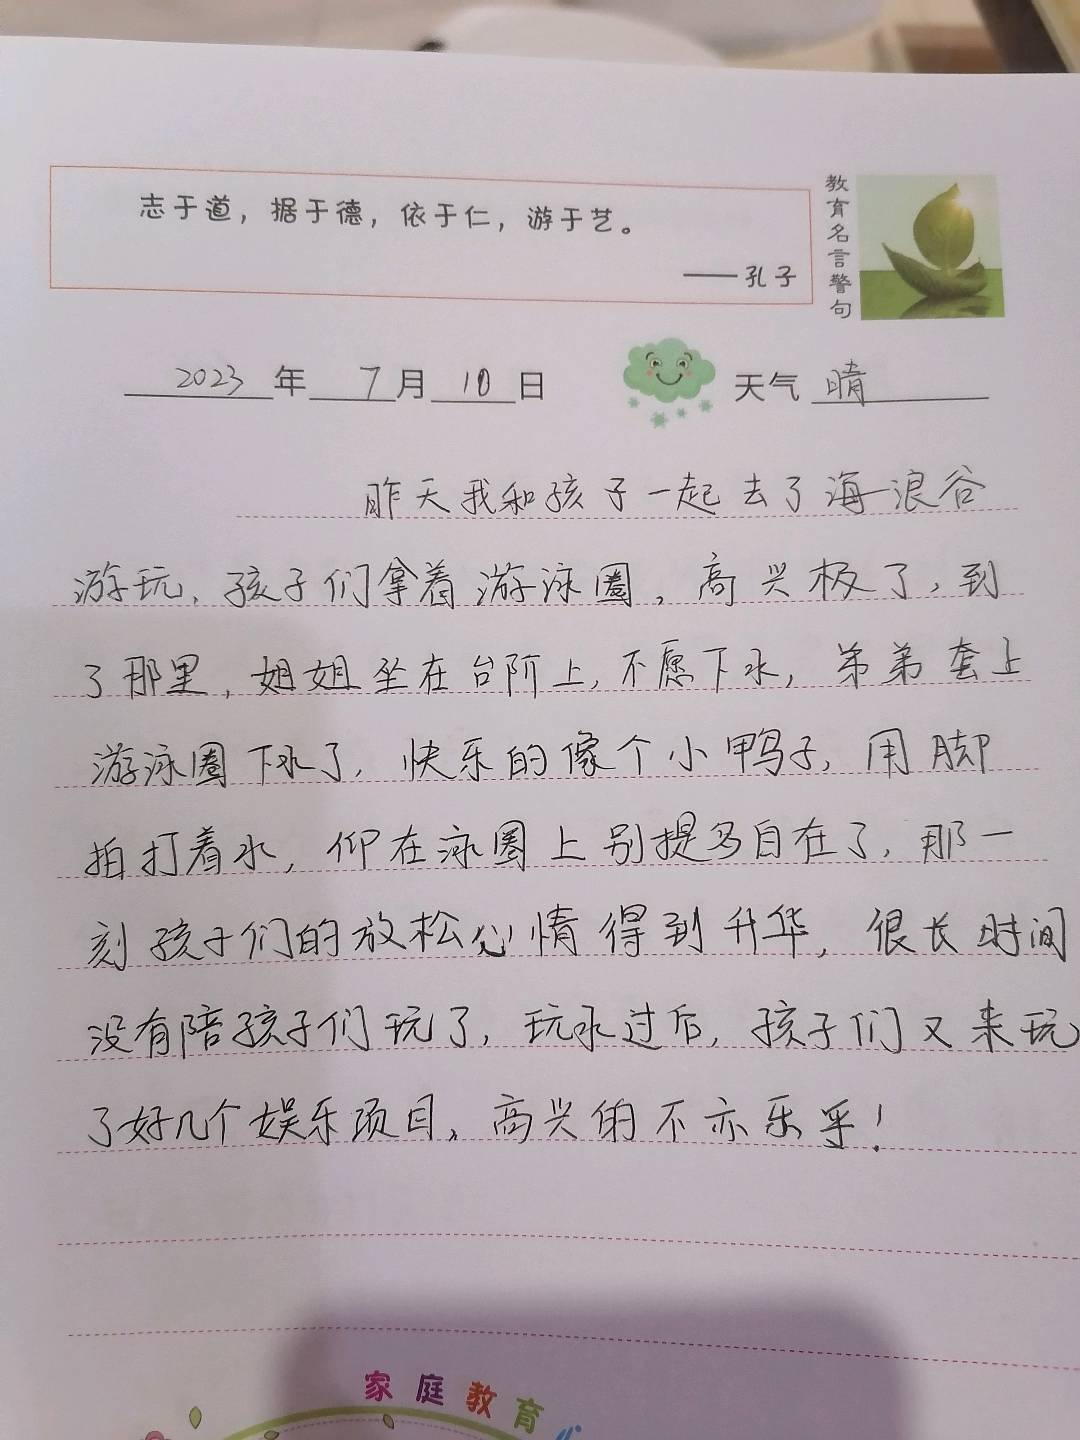 志于道，据于德，依于仁，游于艺。
——孔子
教育名言警句
2023年7月10日 天气 晴
昨天我和孩子一起去了海浪谷
游玩、孩子们拿着游泳圈，高兴极了，到
了那里，姐姐坐在台阶上，不愿下水，弟弟套上
游泳圈下水了，快乐的像个小鸭子，用脚
拍打着水，仰在泳圈上别提多自在了，那一
刻孩子们的放松心情得到升华，很长时间
没有陪孩子们玩了，玩水过后，孩子们又来玩
了好几个娱乐项目，高兴的不亦乐乎！
家庭教育